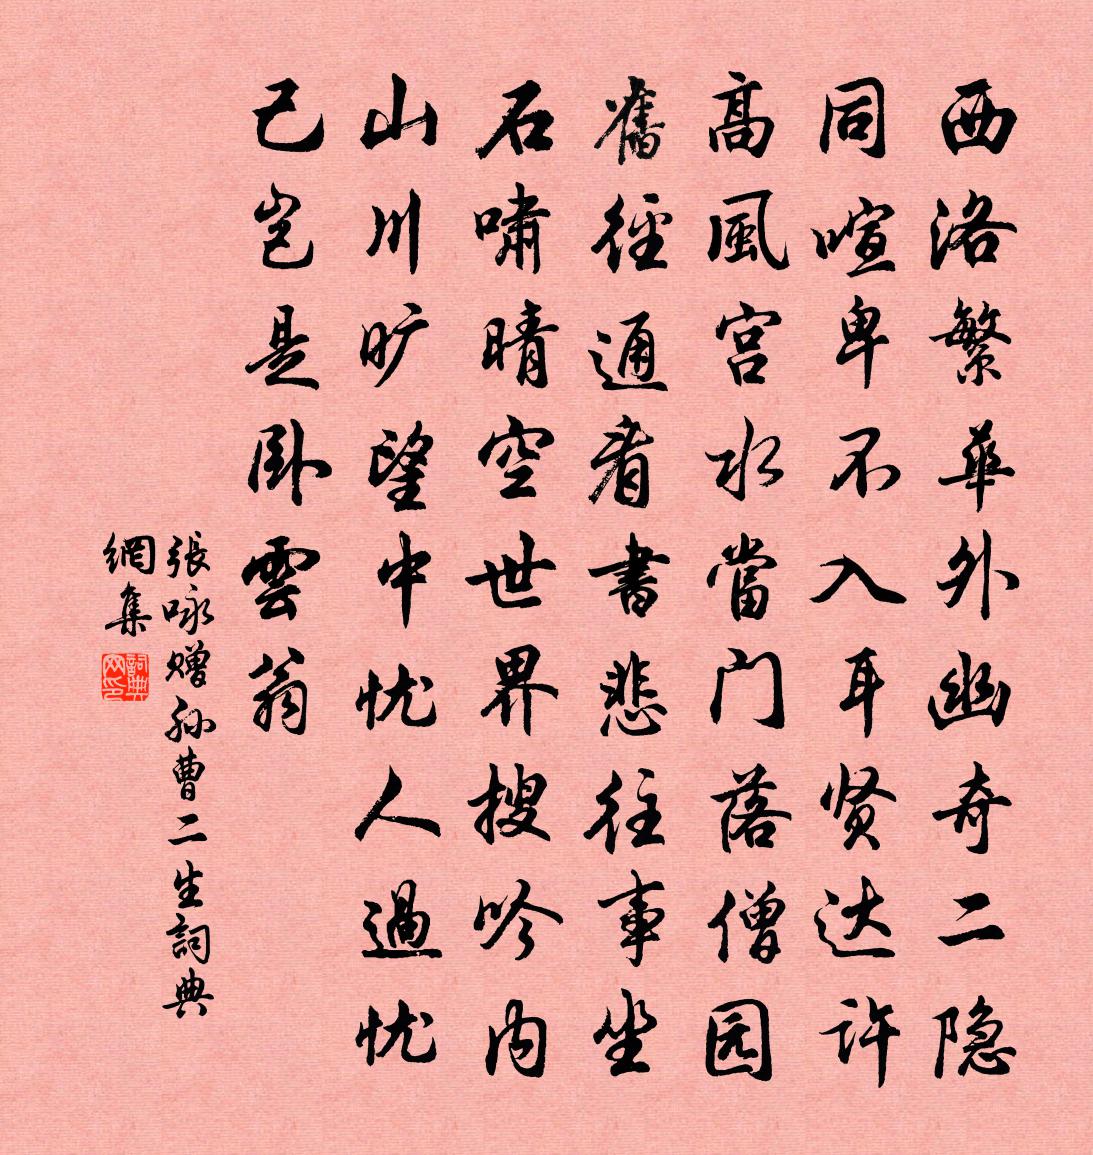 西洛繁華外幽奇二隐
同喧卑不入耳贤达许
高風宫水當门落僧园
舊徑通看書悲往事坐
石嘯晴空世界搜吟内
山川旷望中忧人過忧
己岂是卧雲翁
張咏赠孙曹二生詞典
網集
詞典网印